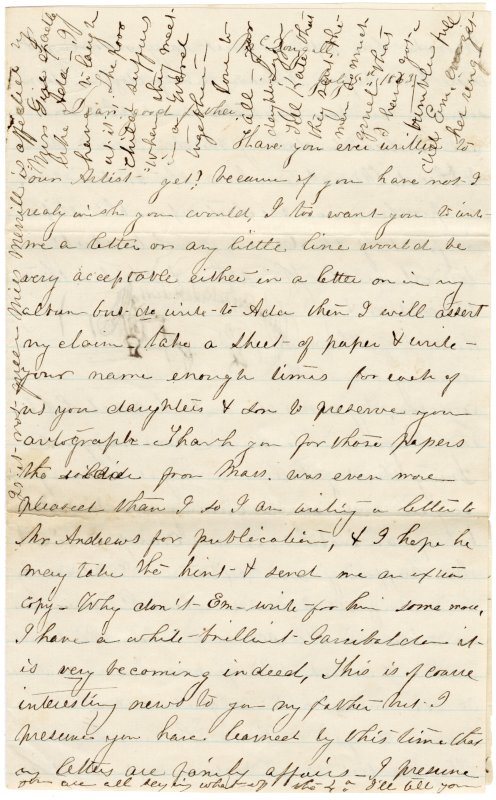 Dear, Good father,
Have you ever written to
our Artist yet? because if you have not I
realy wish you would, I too want you to write
me a letter or any little line would be
very acceptable either in a letter or in my
album but do write to Ada then I will assert
my claim, take a sheet of paper & write
your name enough times for each of
us you daughters & son to preserve your
autograph - Thank you for those papers
the from Mass. was even more
pleased than I so I am writing a letter to
Mr Andrews for publication, & I hope he
may take the hint & send me an extra
copy - Why don't Em write for him some more,
I have a white brilliant Garibaldi on it
is very becoming indeed, This is of course
interesting news to you my father but I
presume you have learned by this time that
my letters are family affairs - I presume
you are all what of the 4th I'll tell you
it is not queer Miss Merrill is affected by
Miss Gige exactly
like Ada
have to laugh
as it is The poor
child suffers
when they meet
in a word
together.
Love to
all your
daughters &
Tell Kate that
they sent the
men
that
I have got
trunble till
Em
her ring